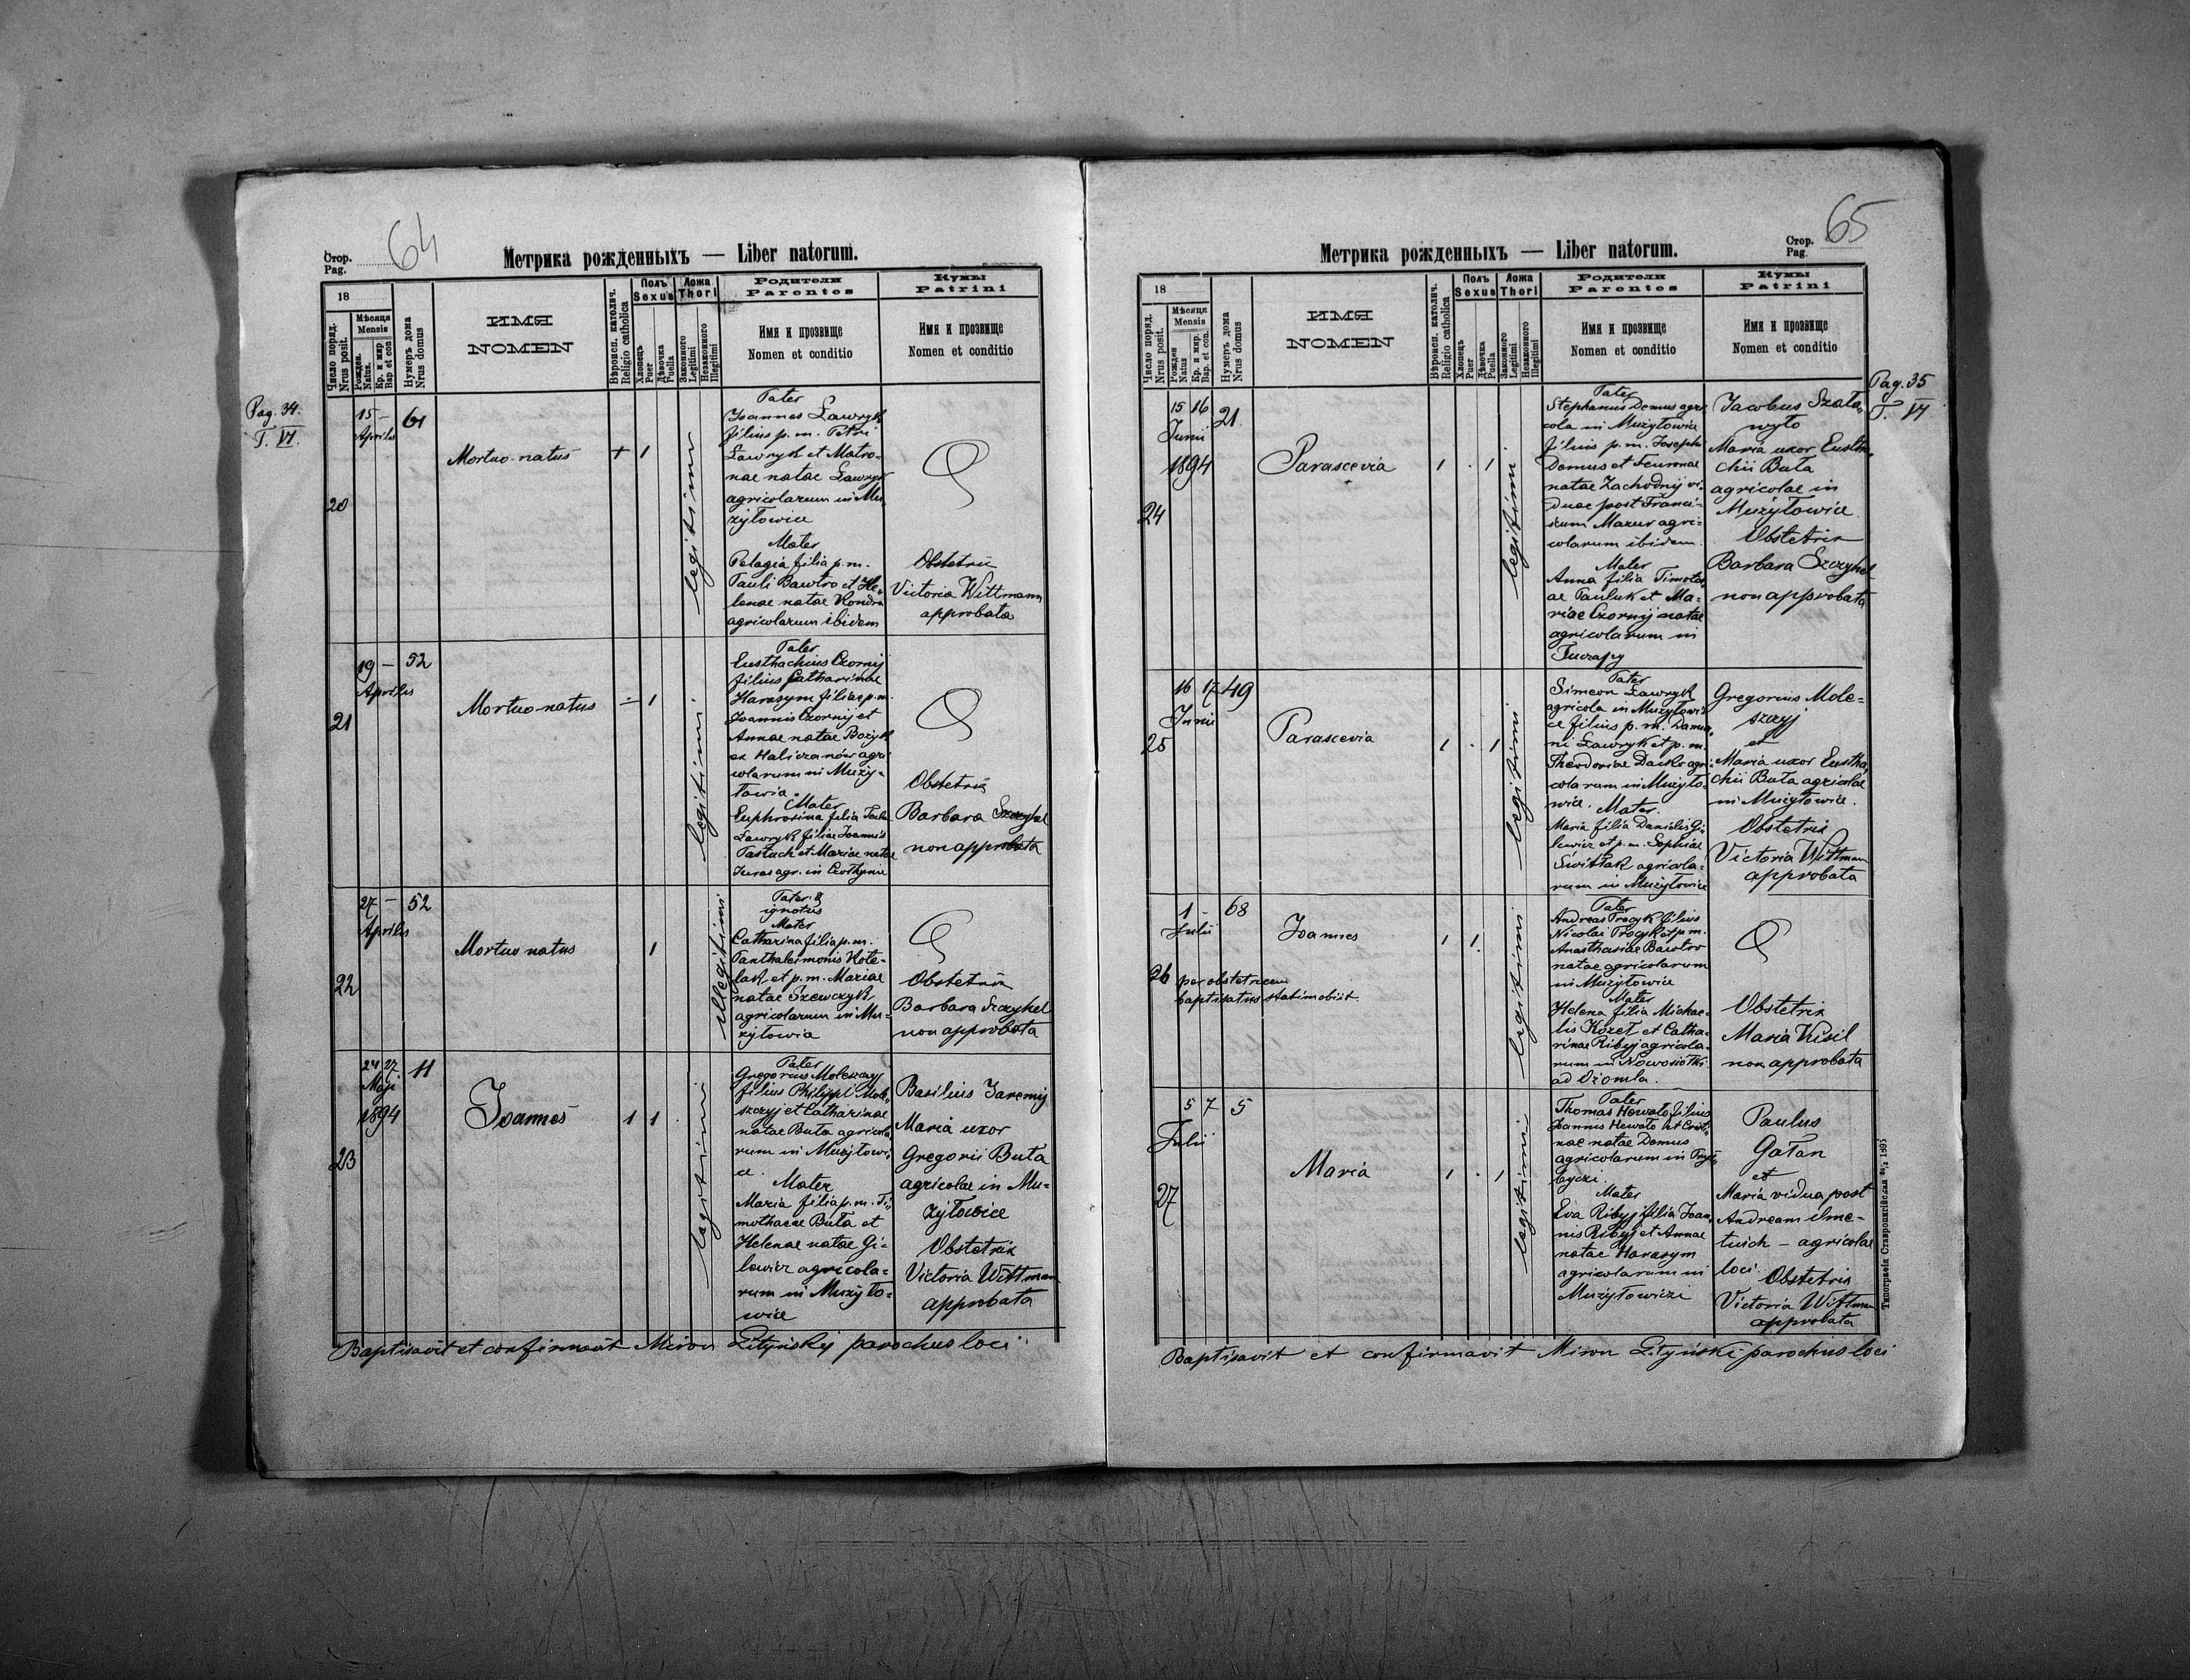 Стор.
Pag. 64
Метрика рожденныхъ — Liber natorum.
18
Число поряд.
Nrus posit.
Мѣсяця
Mensis
Рожден.
Natus.
Кр. и мѵр
Bap et con
Нумеръ дома
Nrus domus
ИМЯ
NOMEN
Вѣроисп. католич.
Religio catholica
Полъ
Sexus
Хлопець
Puer
Дѣвочка
Puella
Ложа
Thori
Законного
Legitimi
Незаконного
Illegitimi
Родители
Parentes
Имя и прозвище
Nomen et conditio
Кумы
Patrini
Имя и прозвище
Nomen et conditio
Pag. 34.
T. VI.
20
15 —
Aprilis
61
Mortuo-natus
+ 1
legitimi
Pater
Joannes Ławryk
filius p. m. Petri
Ławryk et Matro-
nae natae Ławryk
agricolarum in Mu-
żyłowice
Mater
Pelagia filia p. m.
Pauli Bawtro et He-
lenae natae Kondra
agricolarum ibidem
Obstetrix
Victoria Wittmann
approbata
21
19 —
Aprilis
52
Mortuo-natus
÷ 1
legitimi
Pater
Eusthachius Czornij
filius Catharinae
Harasym filiae p. m.
Joannis Czornij et
Annae natae Bożyk
ex Haliczanów agri
colarum in Muży-
łowia.
Mater
Euphrosina filia
Ławryk filiae Joannis
Pastuch et Mariae natae
Juras agr. in
Obstetrix
Barbara Szczyhel
non approbata
22
27 —
Aprilis
52
Mortuo natus
1
illegitimi
Pater
ignotus
Mater
Catharina filia p. m.
Panthaleimonis Kote-
lak et p. m. Mariae
natae Szewczyk
agricolarum in Mu-
żyłowia
Obstetrix
Barbara Szczyhel
non approbata
23
24 27
Maji
1894
11
Joannes
1 1
legitimi
Pater
Gregorius Moleszczyj
filius Philippi Mole-
szczyj et Catharinae
natae Buta agricola
rum in Mużyłowi-
ce.
Mater
Maria filia p. m. Ti-
mothaeae Buta et
Helenae natae Gi-
lewicz agricola-
rum in Mużyło-
wice
Basilius Jaremij
Maria uxor
Gregorii Buta
agricolae in Mu-
żyłowice
Obstetrix
Victoria Wittman
approbata
Baptisavit et confirmavit Miron Lityńskij parochus loci
Стор.
Pag. 65
Метрика рожденныхъ — Liber natorum.
18
Число поряд.
Nrus posit.
Мѣсяця
Mensis
Рожден
Natus
Кр. и мѵр.
Bap. et con.
Нумеръ дома
Nrus domus
ИМЯ
NOMEN
Вѣроисп. католич.
Religio catholica
Полъ
Sexus
Хлопець
Puer
Дѣвочка
Puella
Ложа
Thori
Законного
Legitimi
Незаконного
Illegitimi
Родители
Parentes
Имя и прозвище
Nomen et conditio
Кумы
Patrini
Имя и прозвище
Nomen et conditio
Pag. 35
T. VI
24
15 16
Junii
1894
21
Parascevia
1 . 1
legitimi
Pater
Stephanus Demus agri
cola in Mużyłowice
filius p. m. Josephi
Demus et Feuronae
natae Zachodnij vi-
duae post Franci-
scum Mazur agri-
colarum ibidem.
Mater
Anna filia Timote
ae Pauluk et Ma-
riae Czornij natae
agricolarum in
Tuczapy
Jacobus Szata-
wyło
Maria uxor Eustha-
chii Buta
agricolae in
Mużyłowice
Obstetrix
Barbara Szczyhel
non approbata
25
16 17
Junii
49
Parascevia
1 . 1
legitimi
Pater
Simeon Ławryk
agricola in Mużyłowi-
ce filius p. m. Damia-
ni Ławryk et p. m.
Theodoriae Dacko agri-
colarum in Mużyło-
wice. Mater.
Maria filia Danielis Gi-
lewicz et p. m. Sophiae
Świstak agricola-
rum in Mużyłowice
Gregorius Mole-
szczyj
et
Maria uxor Eustha-
chii Buta agricolae
in Mużyłowice.
Obstetrix
Victoria Wittman
approbata
26
1 -
Julii
68
Joannes
1 1
per obstetricem
baptisatus statim obiit
legitimi
Pater
Andreas Procyk filius
Nicolai Procyk et p. m.
Anasthasiae Bawtro
natae agricolarum
in Mużyłowice
Mater
Helena filia Michae-
lis Kozeł et Catha-
rinae Ribyj agricola-
rum in Nowosiołki
ad Ożomla.
Obstetrix
Maria Kisil
non approbata
27
5 7
Julii
5
Maria
1 . 1
legitimi
Pater
Thomas Howato filius
Joannis Howato et Cristi-
nae natae Demus
agricolarum in Przył-
byczi.
Mater
Eva Ribyj filia Joan-
nis Ribyj et Annae
natae Harasym
agricolarum in
Mużyłowiczi
Paulus
Gałan
et
Maria vidua post
Andream
agricolae
loci.
Obstetrix
Victoria Wittman
approbata
Baptisavit et confirmavit Miron Lityński parochus loci
Типографія Ставропигійская